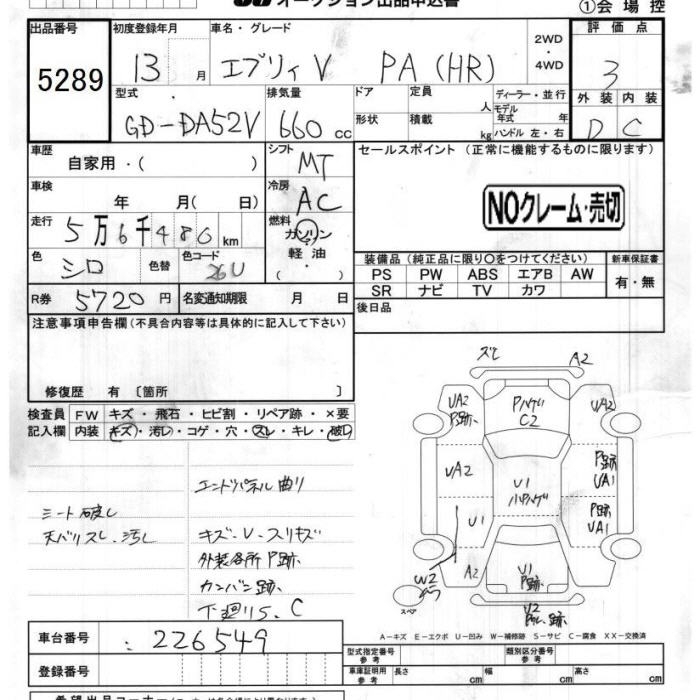 オークション出品申込書
①会場控
出品番号 初度登録年月 車名・グレード 2WD・4WD 評価点
5289 13 月 エブリィV PA(HR) 3
型式 排気量 ドア 定員 人 ディーラー・並行 外装 内装
GD-DA52V 660 cc 形状 積載 kg モデル年式 年 ハンドル 左・右 D C
車歴 自家用・( ) シフト MT セールスポイント(正常に機能するものに限ります)
車検 年 月( 日) 冷房 AC
NOクレーム・売切
走行 5万6千480km 燃料 ガソリン 軽油・
色 シロ 色替 色コード 26U
装備品(純正品に限り○をつけてください) 新車保証書
PS PW ABS エアB AW 有・無
SR ナビ TV カワ
R券 5720円 名変通知期限 月 日 後日品
注意事項申告欄(不具合内容等は具体的に記入して下さい)
修復歴 有〔箇所 〕
検査員 FW キズ・飛石・ヒビ割・リペア跡・×要
記入欄 内装 キズ・汚レ・コゲ・穴・スレ・キレ・破レ
エンドパネル曲り
シート破レ
天バリスレ、汚レ
キズ・V・スリキズ
外装各所P跡
カンバン跡
下廻りS、C
ズレ A2
UA2 P跡 C2 UA2
UA2 U1 P跡 UA1
U1 P跡 UA1
W2 A2 U1 P跡
スペア
U2 跡
A−キズ E−エクボ U−凹み W−補修跡 S−サビ C−腐食 XX−交換済
車台番号 226549
登録番号
型式指定番号 参考 類別区分番号 参考
車庫証明用 参考 長さ cm 幅 cm 高さ cm